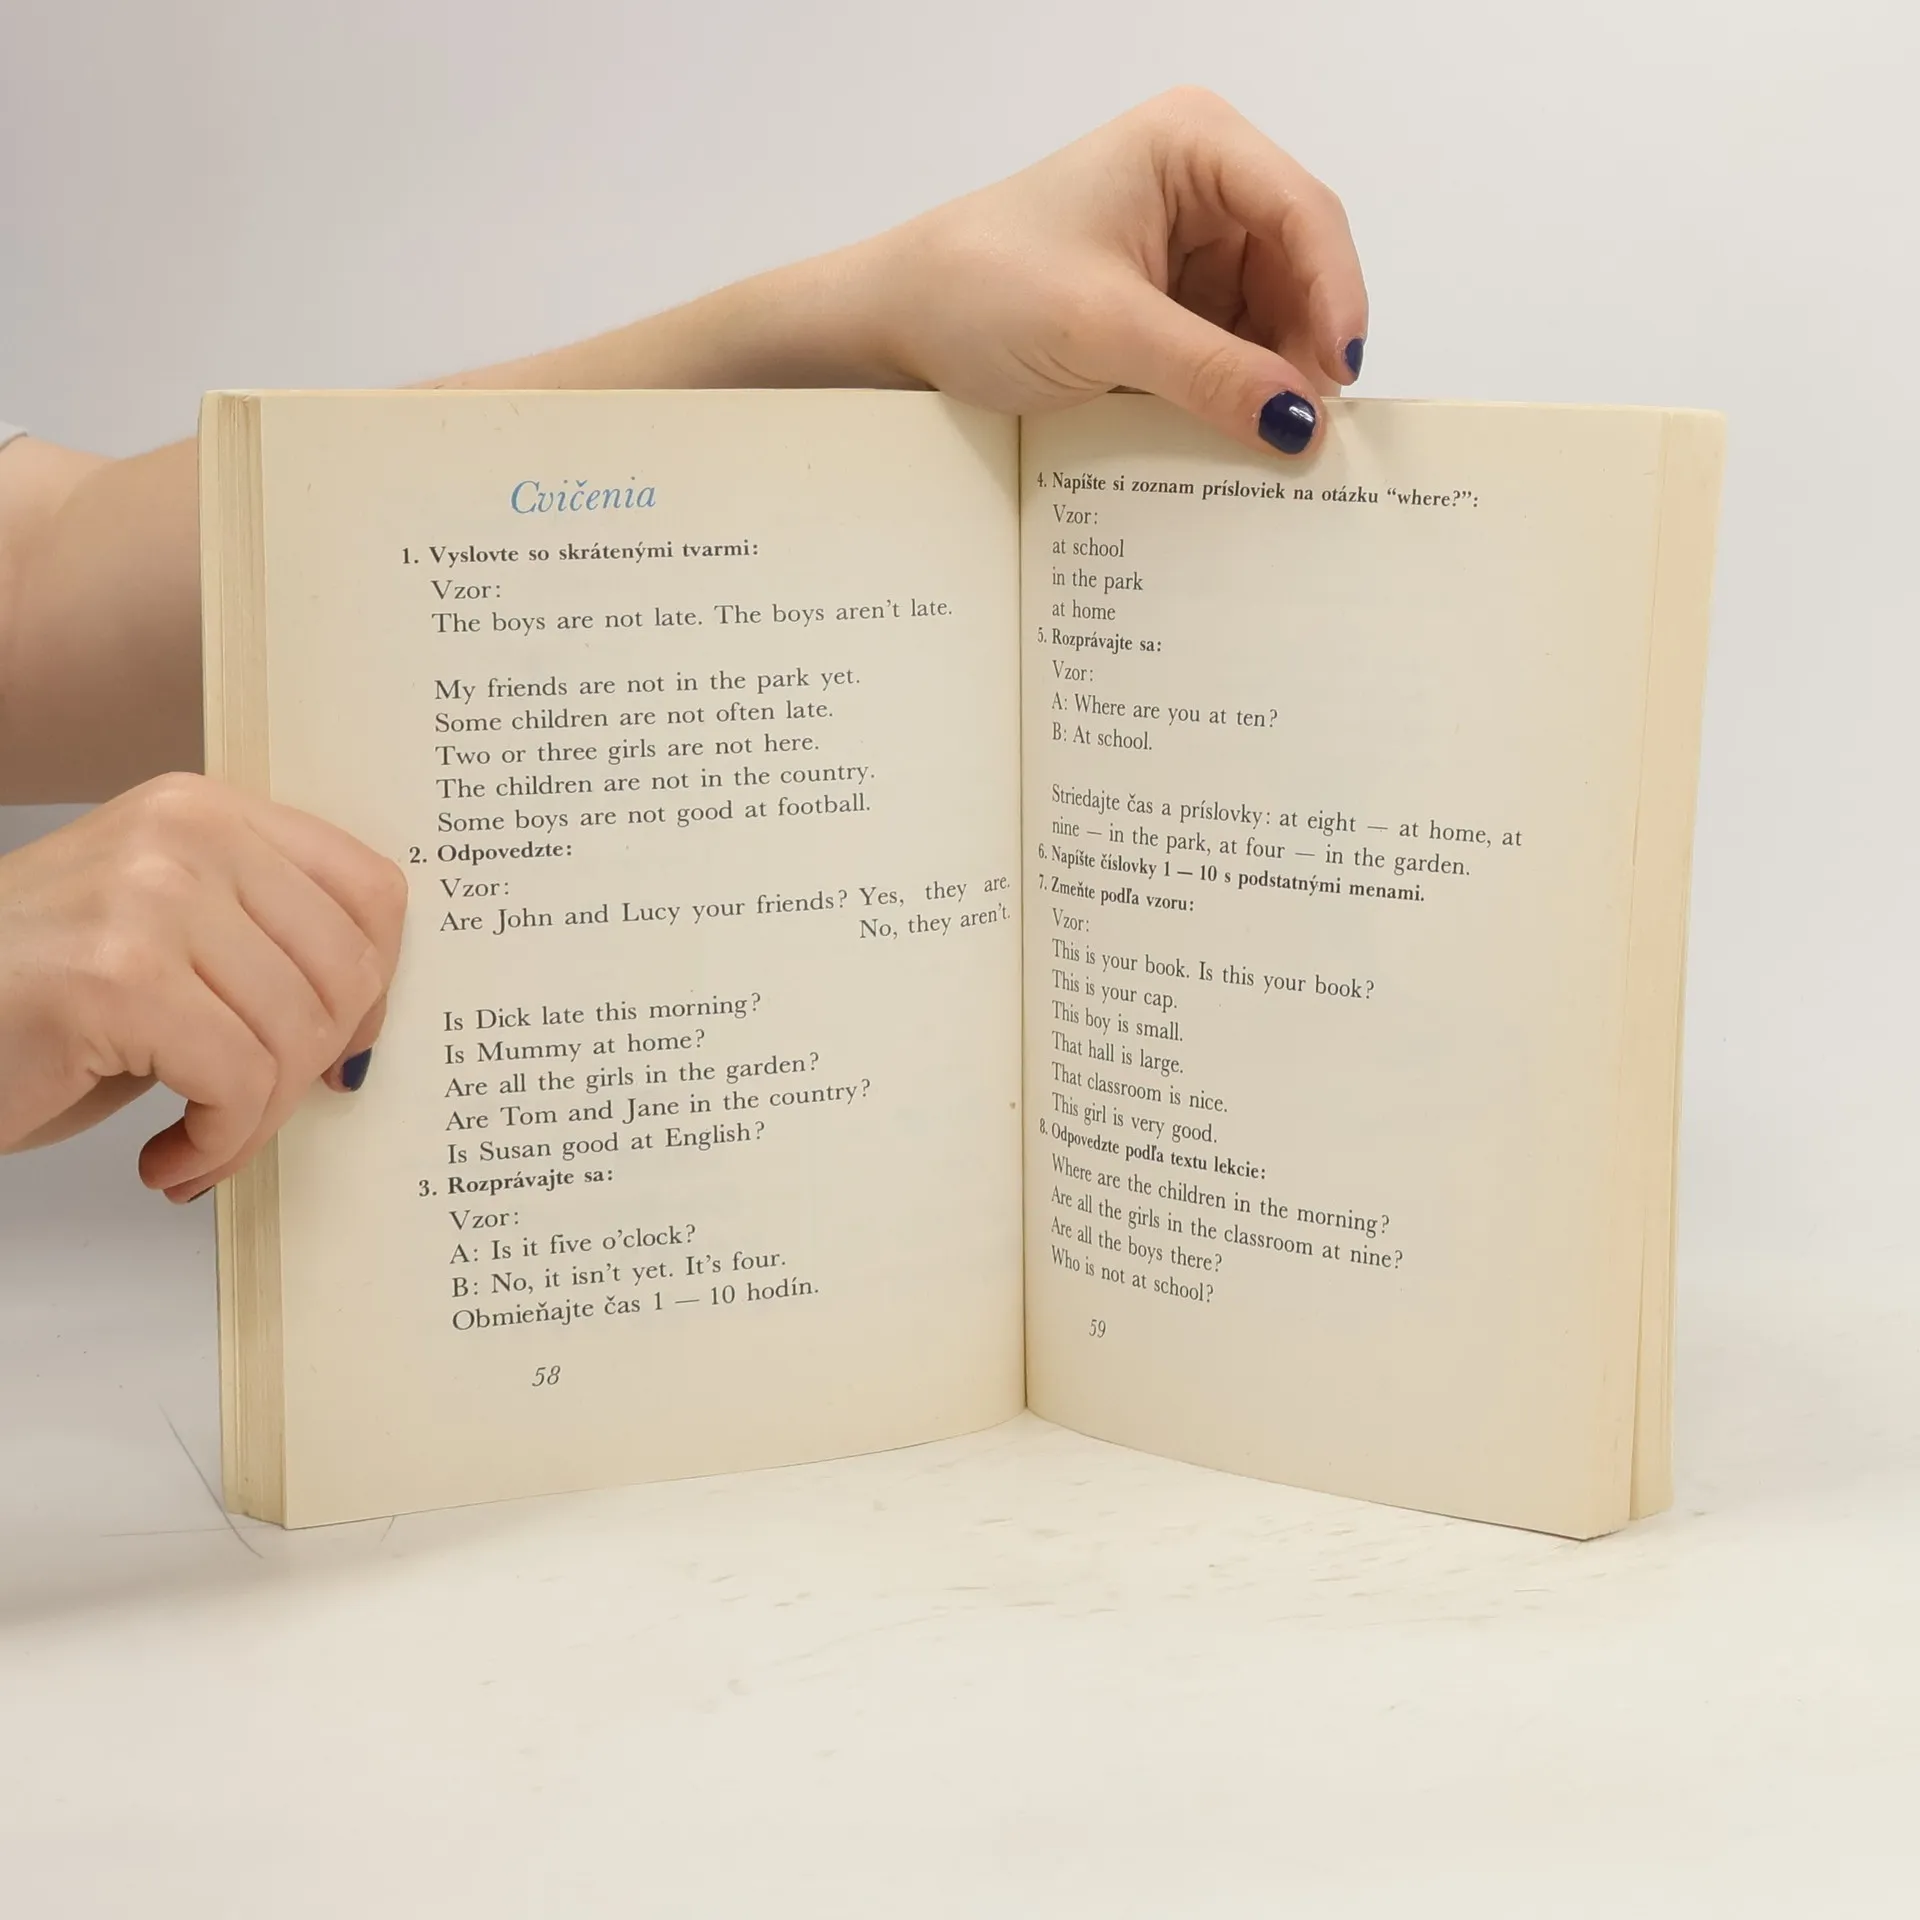 Cvičenia
1. Vyslovte so skrátenými tvarmi:
Vzor:
The boys are not late. The boys aren't late.
My friends are not in the park yet.
Some children are not often late.
Two or three girls are not here.
The children are not in the country.
Some boys are not good at football.
2. Odpovedzte:
Vzor:
Are John and Lucy your friends? Yes, they are.
No, they aren't.
Is Dick late this morning?
Is Mummy at home?
Are all the girls in the garden?
Are Tom and Jane in the country?
Is Susan good at English?
3. Rozprávajte sa:
Vzor:
A: Is it five o'clock?
B: No, it isn't yet. It's four.
Obmieňajte čas 1 — 10 hodín.
58
4. Napíšte si zoznam prísloviek na otázku “where?”:
Vzor:
at school
in the park
at home
5. Rozprávajte sa:
Vzor:
A: Where are you at ten?
B: At school.
Striedajte čas a príslovky: at eight — at home, at
nine — in the park, at four — in the garden.
6. Napíšte číslovky 1 — 10 s podstatnými menami.
7. Zmeňte podľa vzoru:
Vzor:
This is your book. Is this your book?
This is your cap.
This boy is small.
That hall is large.
That classroom is nice.
This girl is very good.
8. Odpovedzte podľa textu lekcie:
Where are the children in the morning?
Are all the girls in the classroom at nine?
Are all the boys there?
Who is not at school?
59